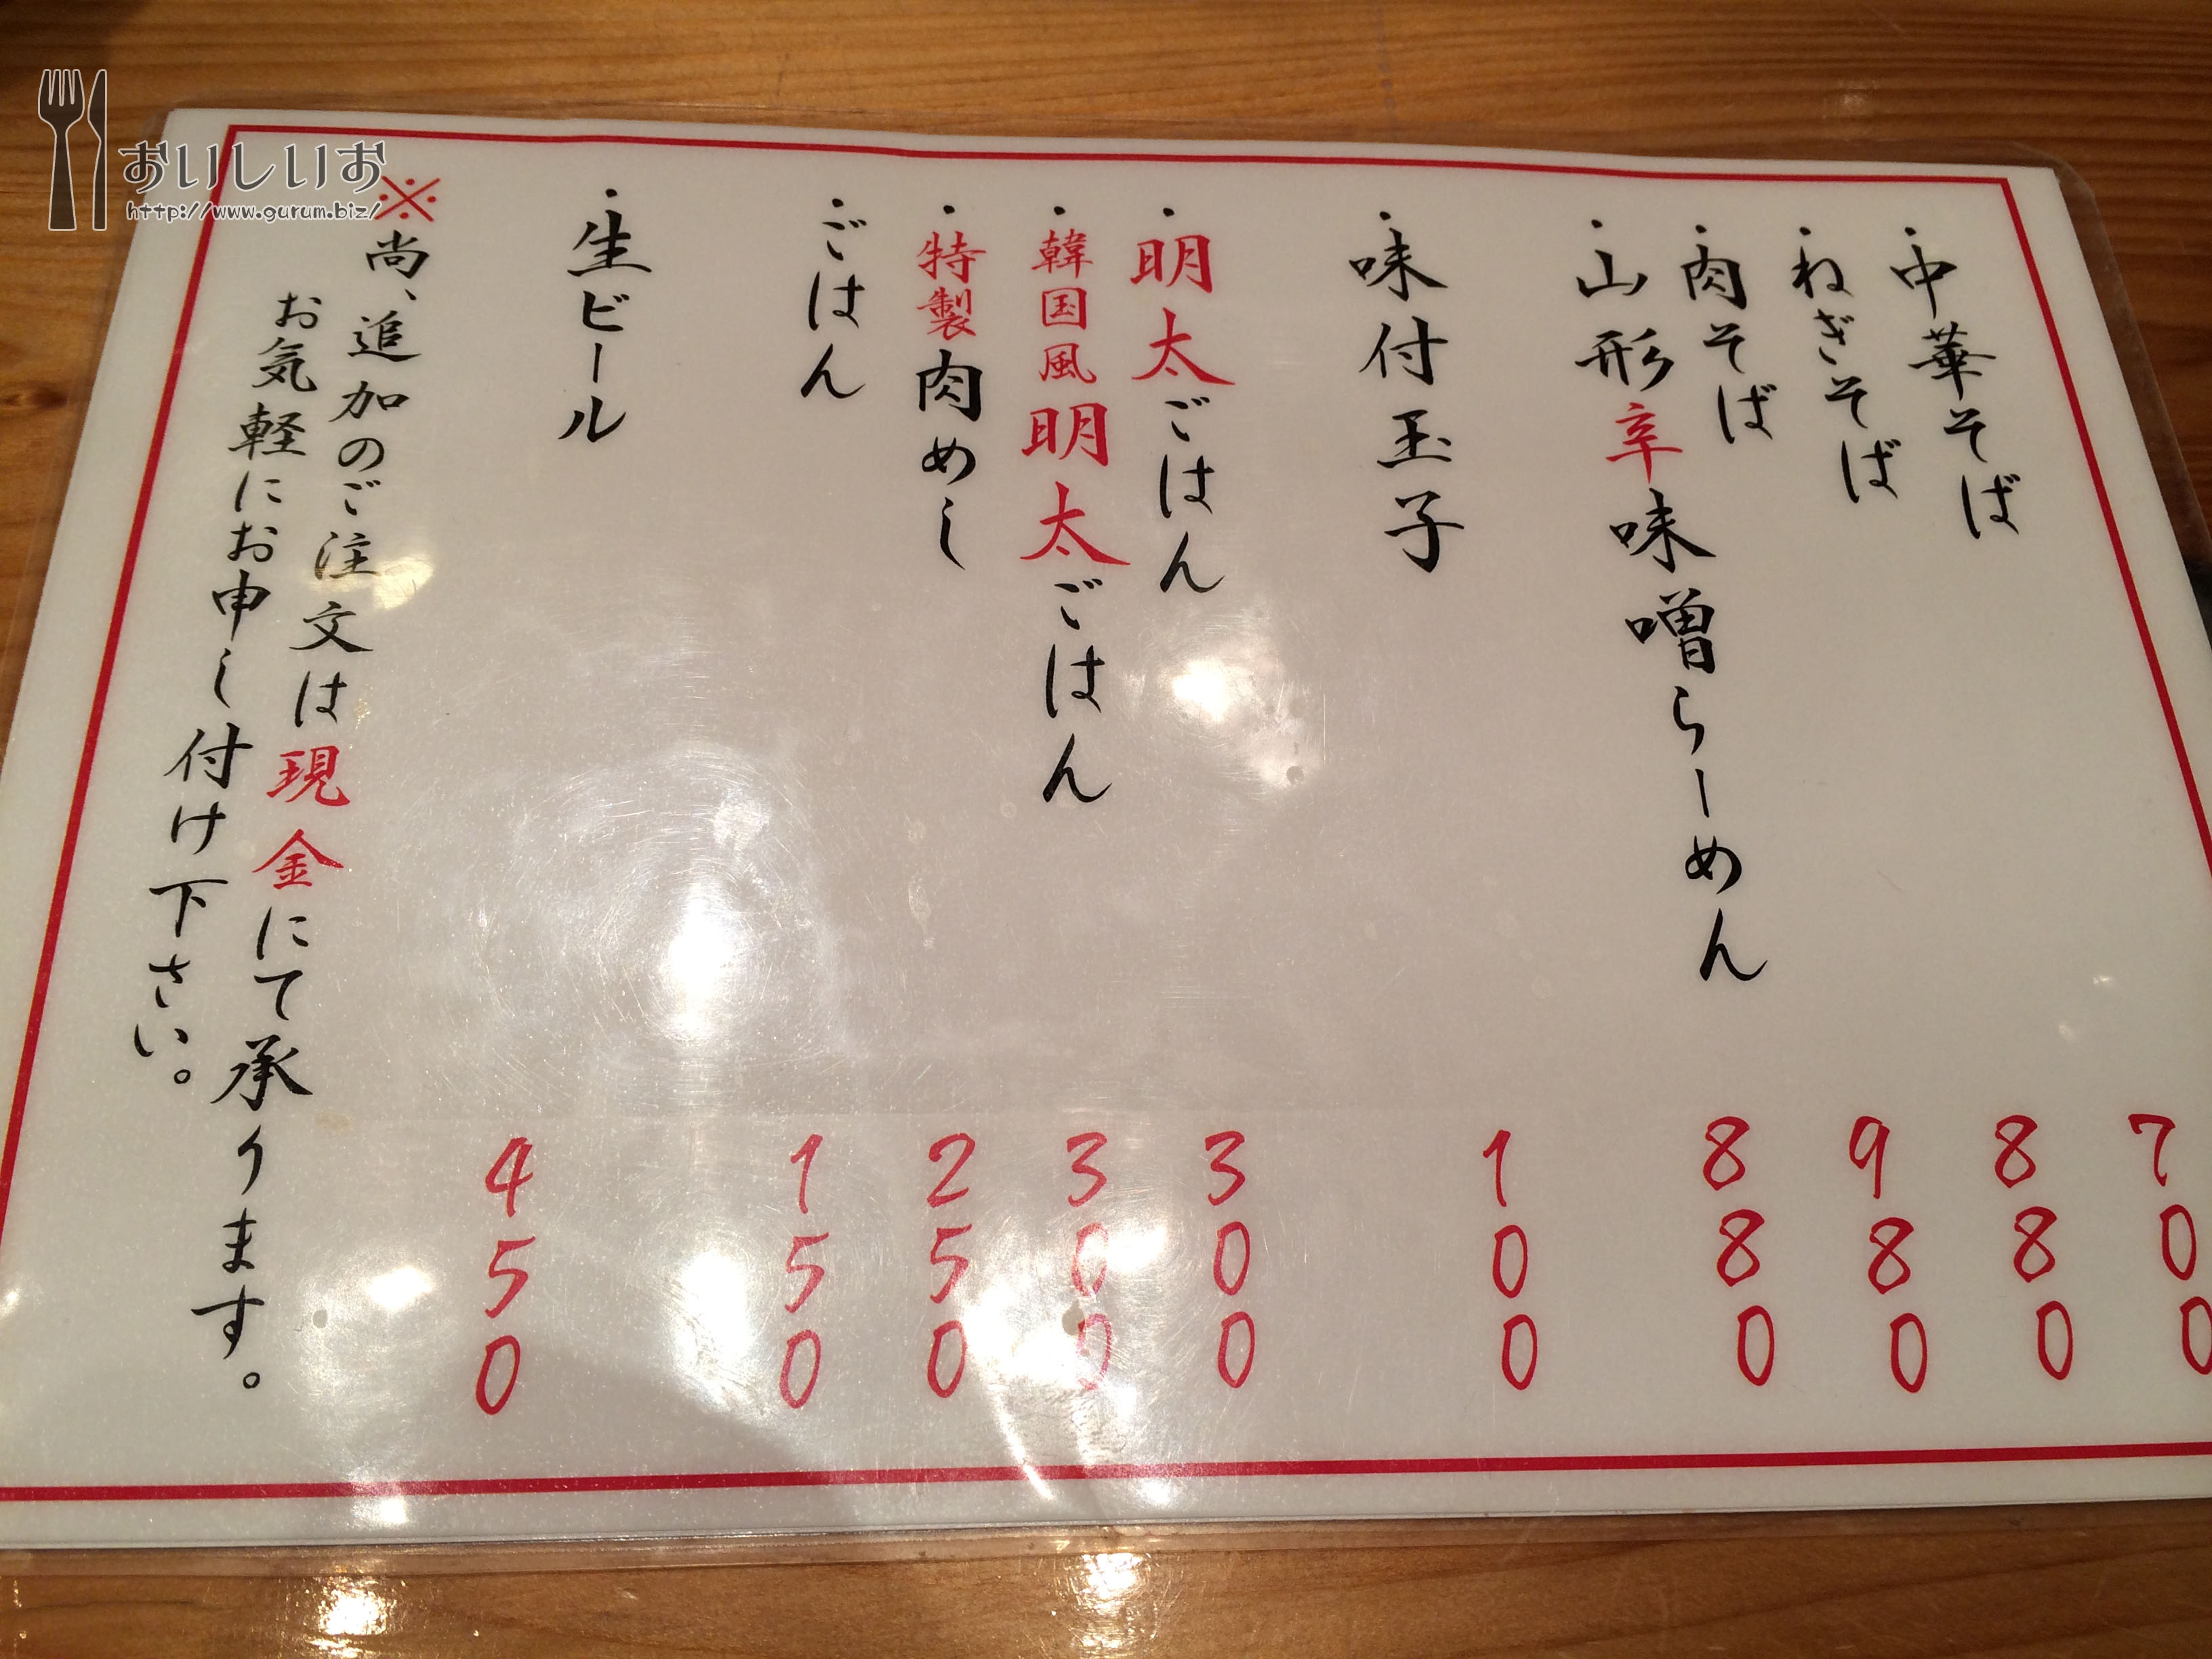 ・中華そば 700
・ねぎそば 880
・肉そば 980
・山形辛味噌らーめん 880
・味付玉子 100
・明太ごはん 300
・韓国風明太ごはん 300
・特製肉めし 250
・ごはん 150
・生ビール 450
※尚、追加のご注文は現金にて承ります。
お気軽にお申し付け下さい。
おいしいお
http://www.gurum.biz/